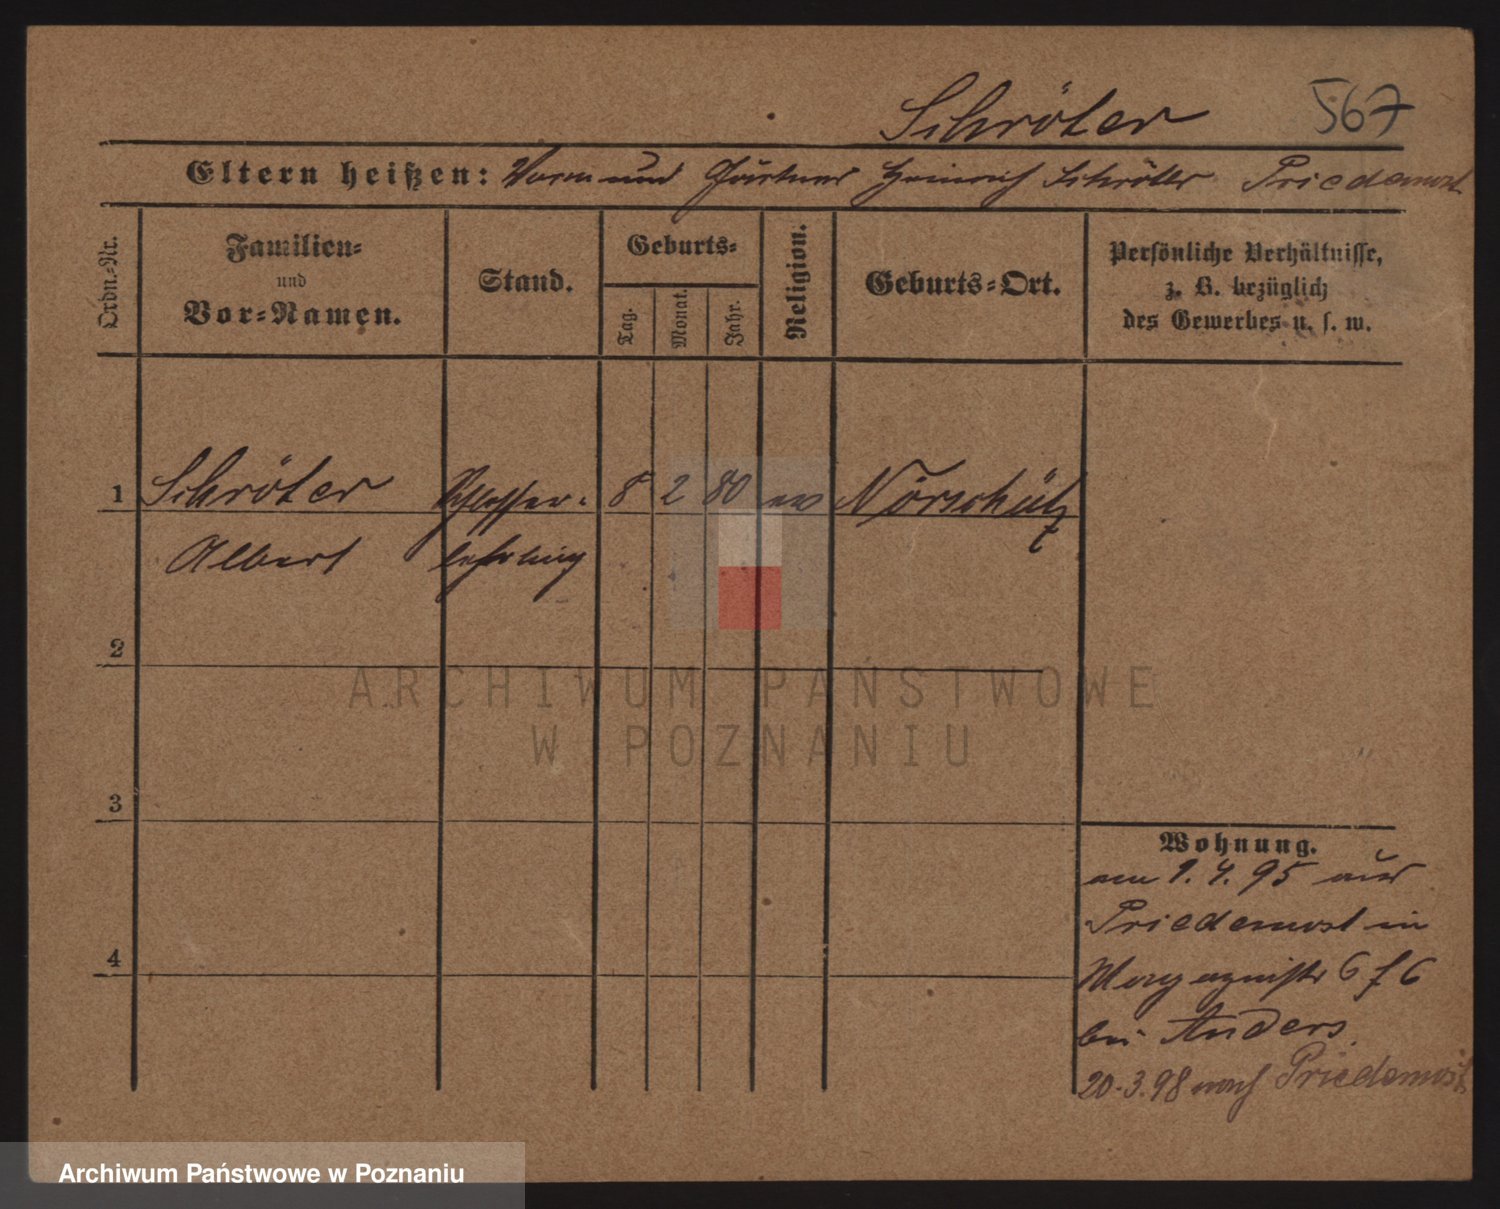 Schröter 567
Eltern heißen: Vormund Gärtner Heinrich Schröter Priedemost
Ordn.-Nr.
Familien-
und
Vor-Namen.
Stand.
Geburts-
Tag.
Monat.
Jahr.
Religion.
Geburts-Ort.
Persönliche Verhältnisse,
z. B. bezüglich
des Gewerbes u. s. w.
1 Schröter Schlosser- 8 2 80 ev Nörschütz
Albert lehrling
2
3
4
Wohnung.
am 1. 4. 95 aus
Priedemost in
6 f 6
bei Anders.
20.3.98 nach Priedemost
ARCHIWUM PAŃSTWOWE
W POZNANIU
Archiwum Państwowe w Poznaniu